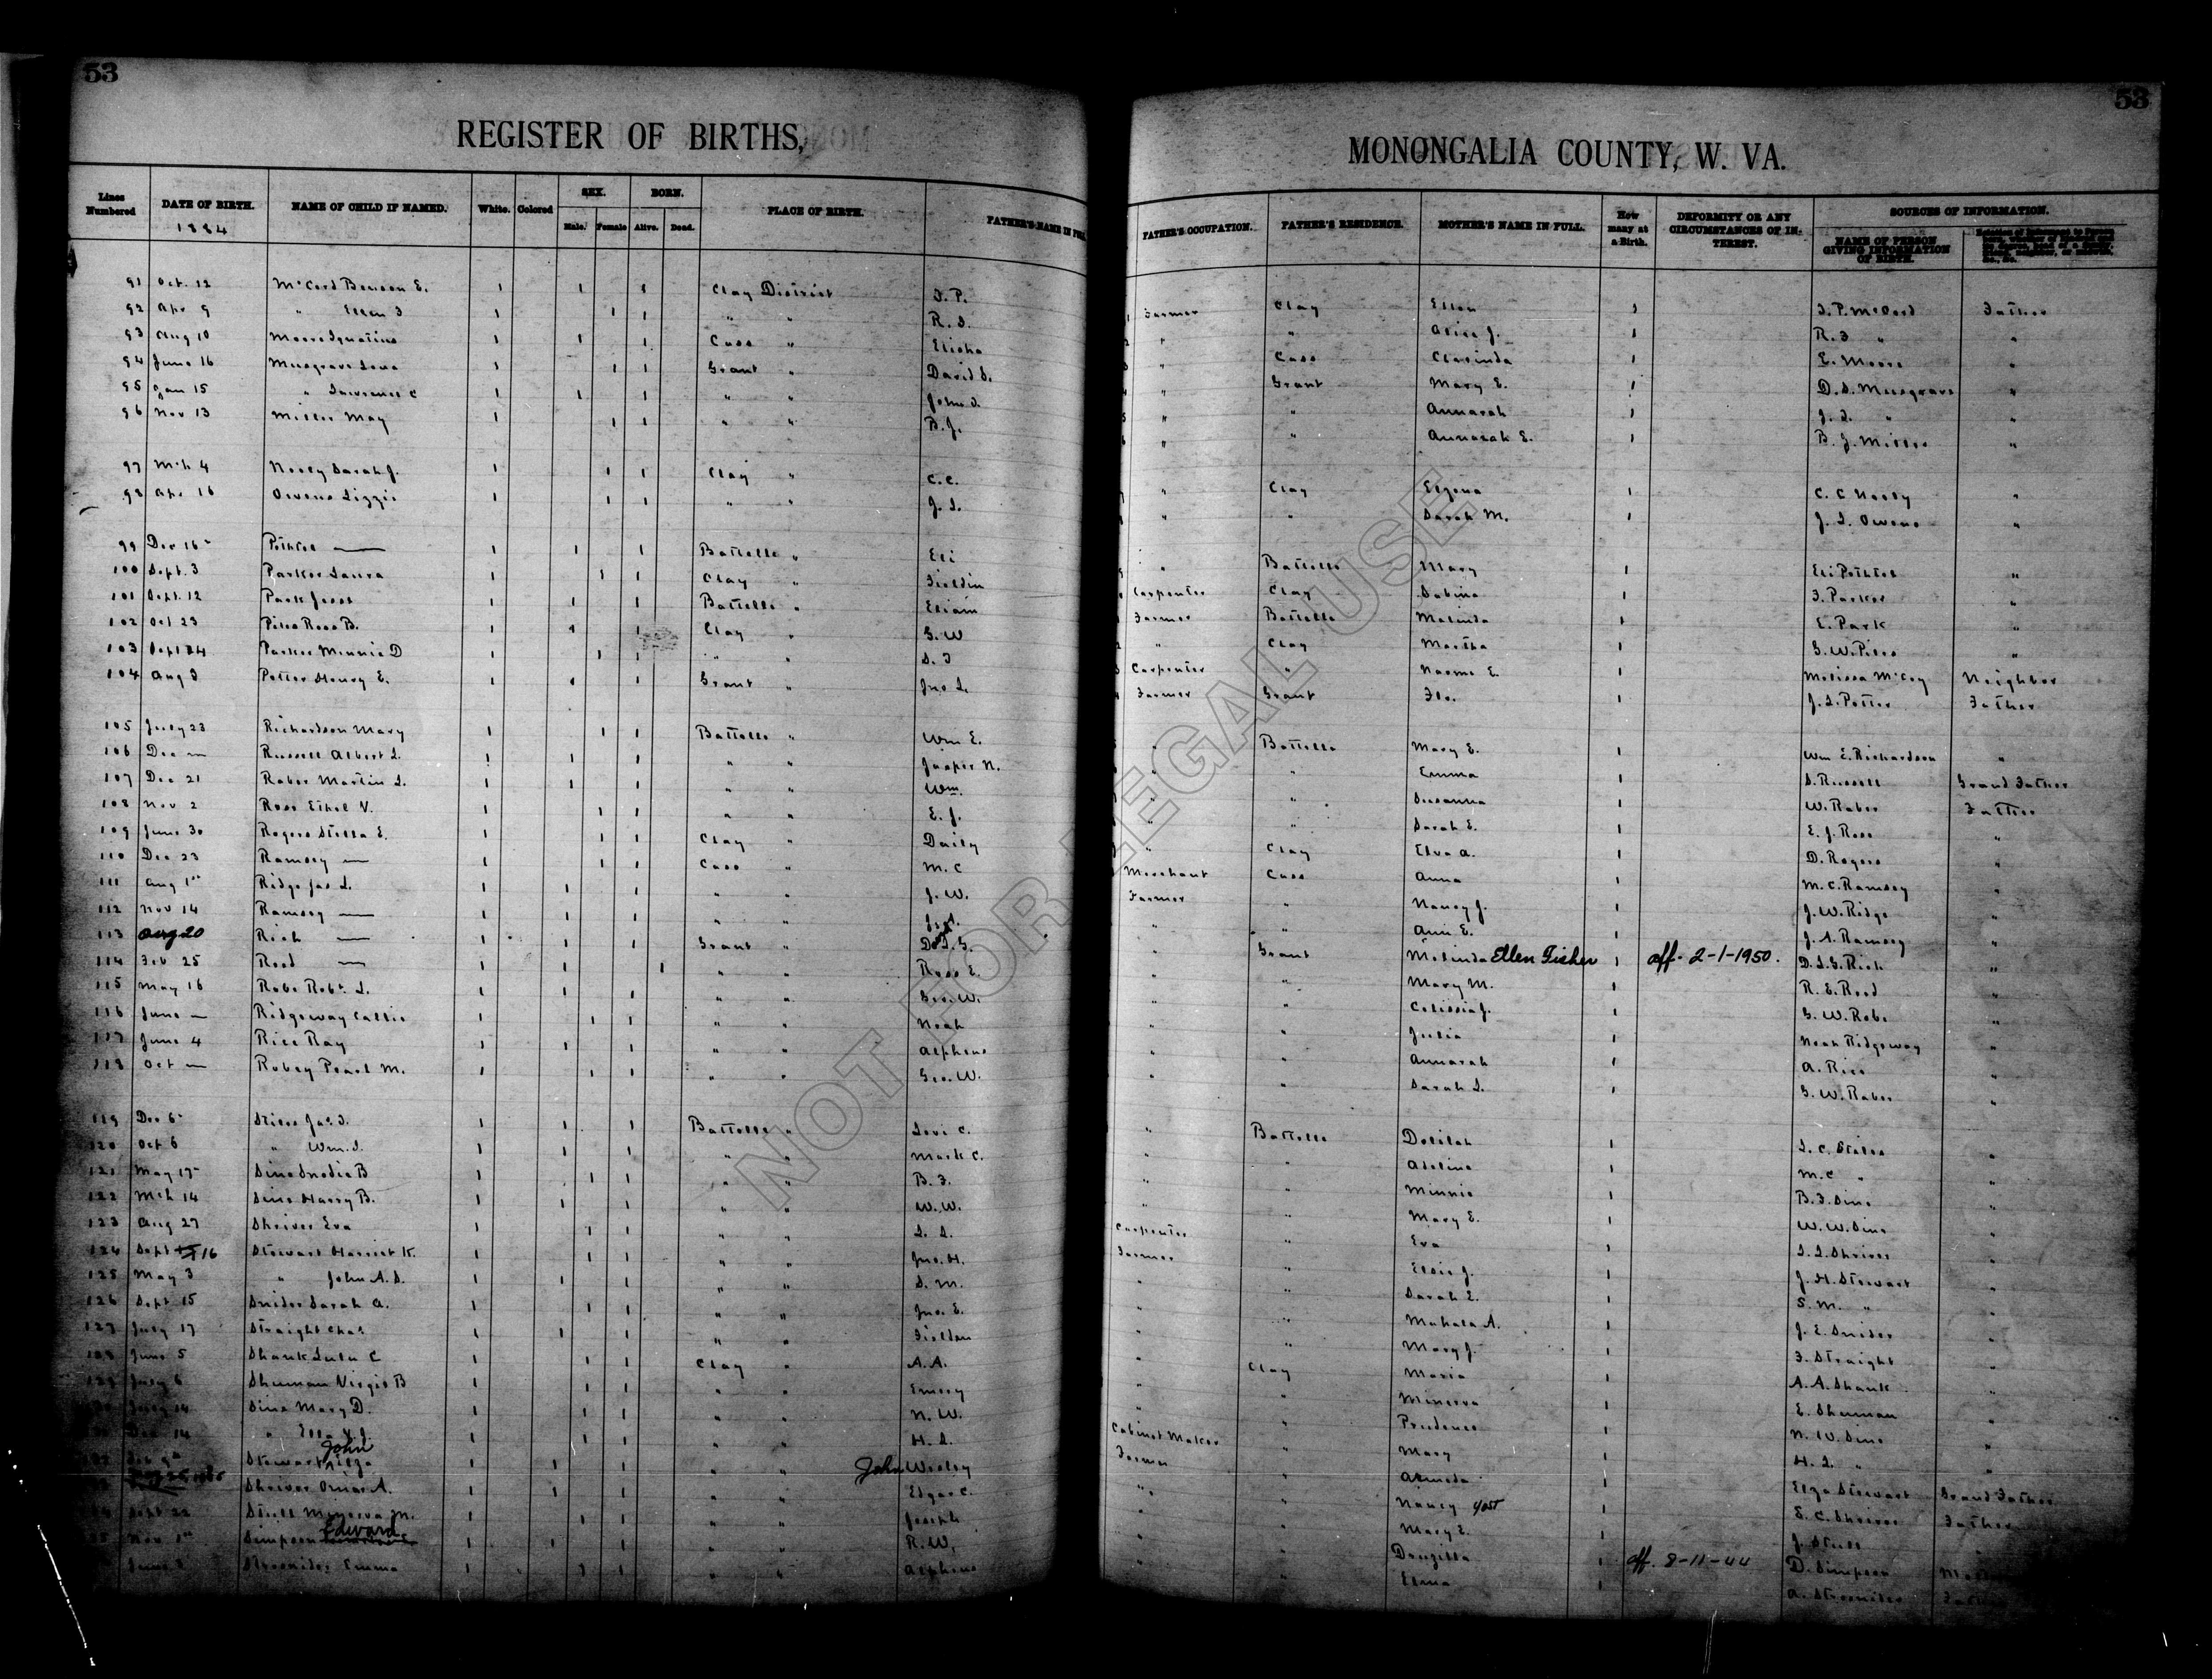 53
53
REGISTER OF BIRTHS,
MONONGALIA COUNTY, W. VA.
Lines Numbered | DATE OF BIRTH. 1884 | NAME OF CHILD IF NAMED. | White. | Colored | SEX. Male. Female | BORN. Alive. Dead. | PLACE OF BIRTH. | FATHER'S NAME IN FULL | FATHER'S OCCUPATION. | FATHER'S RESIDENCE. | MOTHER'S NAME IN FULL. | How many at a Birth. | DEFORMITY OR ANY CIRCUMSTANCES OF INTEREST. | SOURCES OF INFORMATION. NAME OF PERSON GIVING INFORMATION OF BIRTH.
91 Oct. 12 McCord Benson E. 1 1 1 Clay District F. P. Farmer Clay Ellen 1 F. P. McCord Father
92 Apr 9 " Ellen F 1 1 1 " " R. F. " " Alice J. 1 R. F " "
93 Aug 10 Moore Ignatius 1 1 1 Cass " Elisha " Cass Clarinda 1 E. Moore "
94 June 16 Musgrave Lena 1 1 1 Grant " David S. " Grant Mary E. 1 D. S. Musgrave "
95 Jan 15 " Lawrence C 1 1 1 " " John L. " " Annarah 1 J. L. " "
96 Nov 13 Miller May 1 1 1 " " B. J. " " Annarah E. 1 B. J. Miller "
97 Mch 4 Neely Sarah J. 1 1 1 Clay " C. C. " Clay 1 C. C Neely "
98 Apr 16 Owens Lizzie 1 1 1 " " J. L. " " Sarah M. 1 J. L. Owens "
99 Dec 16 1 1 1 Battelle " Eli " Battelle Mary 1 Eli "
100 Sept. 3 Parker Laura 1 1 1 Clay " Fieldin Carpenter Clay Sabina 1 F. Parker "
101 Sept. 12 Park Jesse 1 1 1 Battelle " Farmer Battelle Malinda 1 E. Park "
102 Oct 23 Piles Ross B. 1 1 1 Clay " G. W " Clay Martha 1 G. W. Piles "
103 Sept 24 Parker Minnie D 1 1 1 " " S. F Carpenter " Naoma E. 1 Melissa McCoy Neighbor
104 Aug 3 Potter Henry E. 1 1 1 Grant " Jno L. Farmer Grant Flo. 1 J. L. Potter Father
105 July 23 Richardson Mary 1 1 1 Battelle " Wm E. " Battelle Mary E. 1 Wm E. Richardson "
106 Dec — Russell Albert L. 1 1 1 " " Jasper N. " " Emma 1 S. Russell Grand Father
107 Dec 21 Raber Martin L. 1 1 1 " " Wm. " " Susanna 1 W. Raber Father
108 Nov 2 Ross Ethel V. 1 1 1 " " E. J. " " Sarah E. 1 E. J. Ross "
109 June 30 Rogers Stella E. 1 1 1 Clay " Daily " Clay Elva A. 1 D. Rogers "
110 Dec 23 Ramsey — 1 1 1 Cass " M. C Merchant Cass Anna 1 M. C. Ramsey "
111 Aug 1st Ridge Jas L. 1 1 1 " " J. W. Farmer " Nancy J. 1 J. W. Ridge "
112 Nov 14 Ramsey — 1 1 1 " " J. A. " " Ann E. 1 J. A. Ramsey "
113 Aug 20 Rich — 1 1 1 Grant " " Grant Malinda Ellen Fisher 1 aff. 2-1-1950. D. L. G. Rich "
114 Feb 25 Reed — 1 1 1 " " Ross E. " " Mary M. 1 R. E. Reed "
115 May 16 Robe Robt. L. 1 1 1 " " Geo. W. " " Celissia J. 1 G. W. Robe "
116 June — Ridgeway Callie 1 1 1 " " Noah " " Julia 1 Noah Ridgeway "
117 June 4 Rice Ray 1 1 1 " " Alpheus " " Annarah 1 A. Rice "
118 Oct — Robey Pearl M. 1 1 1 " " Geo. W. " " Sarah L. 1 G. W. Raber "
119 Dec 6 Stiles Jas. F. 1 1 1 Battelle " Levi C. " Battelle Delilah 1 L. C. Stiles "
120 Oct 6 " Wm. L. 1 1 1 " " Mark C. " " Adeline 1 M. C " "
121 May 17 Sine B 1 1 1 " " B. F. " " Minnie 1 B. F. Sine "
122 Mch 14 Sine Harry B. 1 1 1 " " W. W. " " Mary E. 1 W. W. Sine "
123 Aug 27 Shriver Eva 1 1 1 " " L. L. Carpenter " Eva 1 L. L. Shriver "
124 Sept 16 Stewart Harriet K. 1 1 1 " " Jno. H. Farmer " Elsie J. 1 J. H. Stewart "
125 May 3 " John A. S. 1 1 1 " " S. M. " " Sarah E. 1 S. M. " "
126 Sept 15 Snider Sarah A. 1 1 1 " " Jno. E. " " Mahala A. 1 J. E. Snider "
127 July 17 Straight Chas 1 1 1 " " Fieldon " " Mary J. 1 F. Straight "
128 June 5 Shank Lulu C 1 1 1 Clay " A. A. " Clay Maria 1 A. A. Shank "
129 July 6 Shuman Virgie B 1 1 1 " " Emery " " Minerva 1 E. Shuman "
July 14 Sine Mary D. 1 1 1 " " N. W. " " Prudence 1 N. W. Sine "
14 " Ella V. J. 1 1 1 " " H. L. Cabinet Maker " Mary 1 H. L. " "
Stewart John Elza 1 1 1 " " John Wesley Farmer " Almeda 1 Elza Stewart Grand Father
Shriver Omar A. 1 1 1 " " Edgar C. " " Nancy Yost 1 E. C. Shriver Father
Sept 22 Stull Minerva M. 1 1 1 " " Joseph " " Mary E. 1 J. Stull "
Nov 1st Simpson Edward 1 1 1 " " R. W. " " Druzilla 1 aff. 8-11-44 D. Simpson
June 8 Strosnider Emma 1 1 1 " " Alpheus " " Elma 1 A. Strosnider Father
NOT FOR LEGAL USE